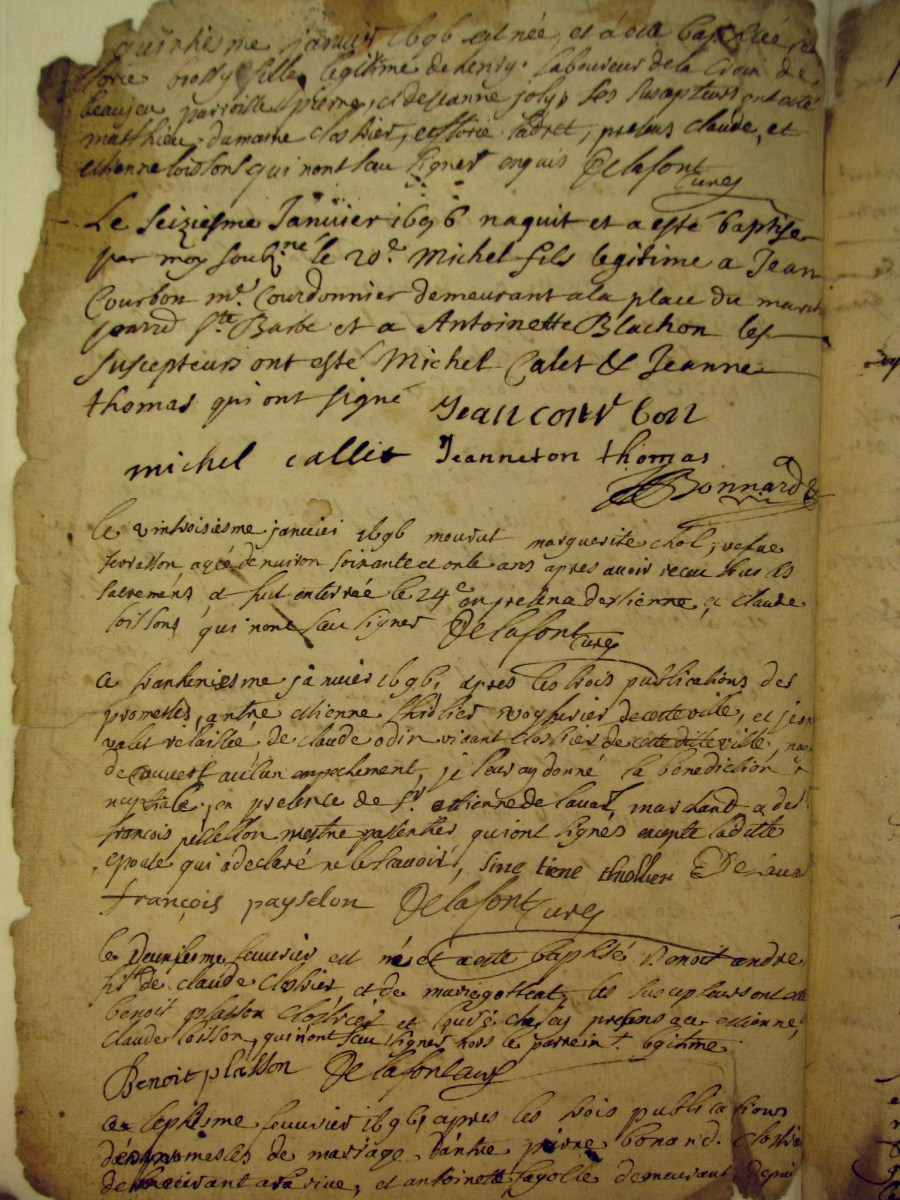 quinziesme janvier 1696 est née, et a esté baptisée
fille legitime de henry laboureur de la Croix de
beaujeu parroisse st pierre, et de jeanne joly, ses suscepteurs ont esté
matthieu dumaine clostrier, et florie padret, presens claude, et
estienne loissons qui n'ont sceu signer enquis Delafont
Curé
Le seiziesme Janvier 1696 naquit et a esté baptisé
par moy soubne le 20e Michel fils legitime a Jean
Courbon me Courdonnier demeurant a la place du marché
Ste Barbe et a Antoinette Blachon les
suscepteurs ont esté Michel Calet & Jeanne
thomas qui ont signé Jean Courbon
michel callet Jeanneton thomas
Bonnard
le vintroisiesme janvier 1696 mourut marguerite chol, vefue
terrasson agée denuiron soixante et onze ans apres auoir receu tous les
sacremens et fut enterrée le 24e en presence d'estienne, et claude
loissons qui n'ont sceu signer Delafont
Curé
Ce trantiesme janvier 1696, apres les trois publications des
promesses, antre estienne thiolier de cette ville, et jeanne
valet relaissée de claude odin vivant clostrier de cette ditte ville,
decouvert aucun empechement, je leur ay donné la benediction
nuptiale, en presence de sr estienne de laual, marchand, et de
françois pellelon mestre passentier qui ont signés excepté laditte
epouse qui a declaré ne le scavoir, tiene thiollier De
françois payselon Delafont Curé
le Deuxiesme feuurier est né et a esté baptisé Benoit andre
fils de claude clostrier et de marie gotteat, les suscepteurs ont esté
benoit plasson clostrier et presens ace estienne,
claude loisson, qui n'ont sceu signer hors le parrein legitime
Benoit plasson Delafont Curé
Ce septiesme feuurier 1696, apres les trois publications
des promesses de mariage d'antre pierre bonand
demeurant a la rive, et antoinette demeurant depuis